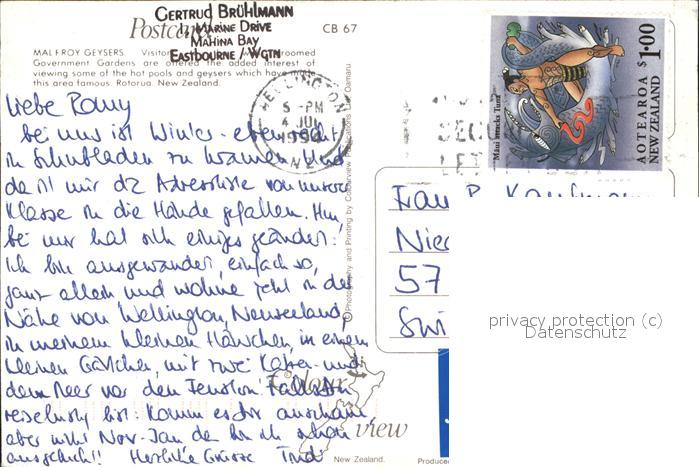 GERTRUD BRÜHLMANN
1, MARINE DRIVE
MAHINA BAY
EASTBOURNE / WGTN
Postcard
CB 67
MALFROY GEYSERS. Visitors groomed
Government Gardens are offered the added interest of
viewing some of the hot pools and geysers which have made
this area famous. Rotorua. New Zealand.
Liebe Romy
bei uns ist Winter - eben recht
in Schubladen zu kramen. Und
da ist mir die Adressliste von unserer
Klasse in die Hände gefallen. Nun
bei mir hat sich einiges geändert:
Ich bin ausgewandert, einfach so,
ganz allein und wohne jetzt in der
Nähe von Wellington, Neuseeland,
in meinem kleinen Häuschen, in einem
kleinen Gärtchen, mit zwei Katzen und
dem Meer vor den Fenstern. Falls Du
reiselustig bist: Komm es dir anschauen,
aber nicht Nov - Jan da bin ich schon
ausgebucht!! Herzliche Grüsse Trudi
WELLINGTON
5 - PM
4 JUL
1994
N.Z.
Maui attacks Tuna
AOTEAROA
NEW ZEALAND
$1·00
Frau R. Kaufmann
Nied
57
Swi
Photography and Printing by Colourview Publications Ltd Oamaru
Colour
view
New Zealand.
Produced
privacy protection (c)
Datenschutz